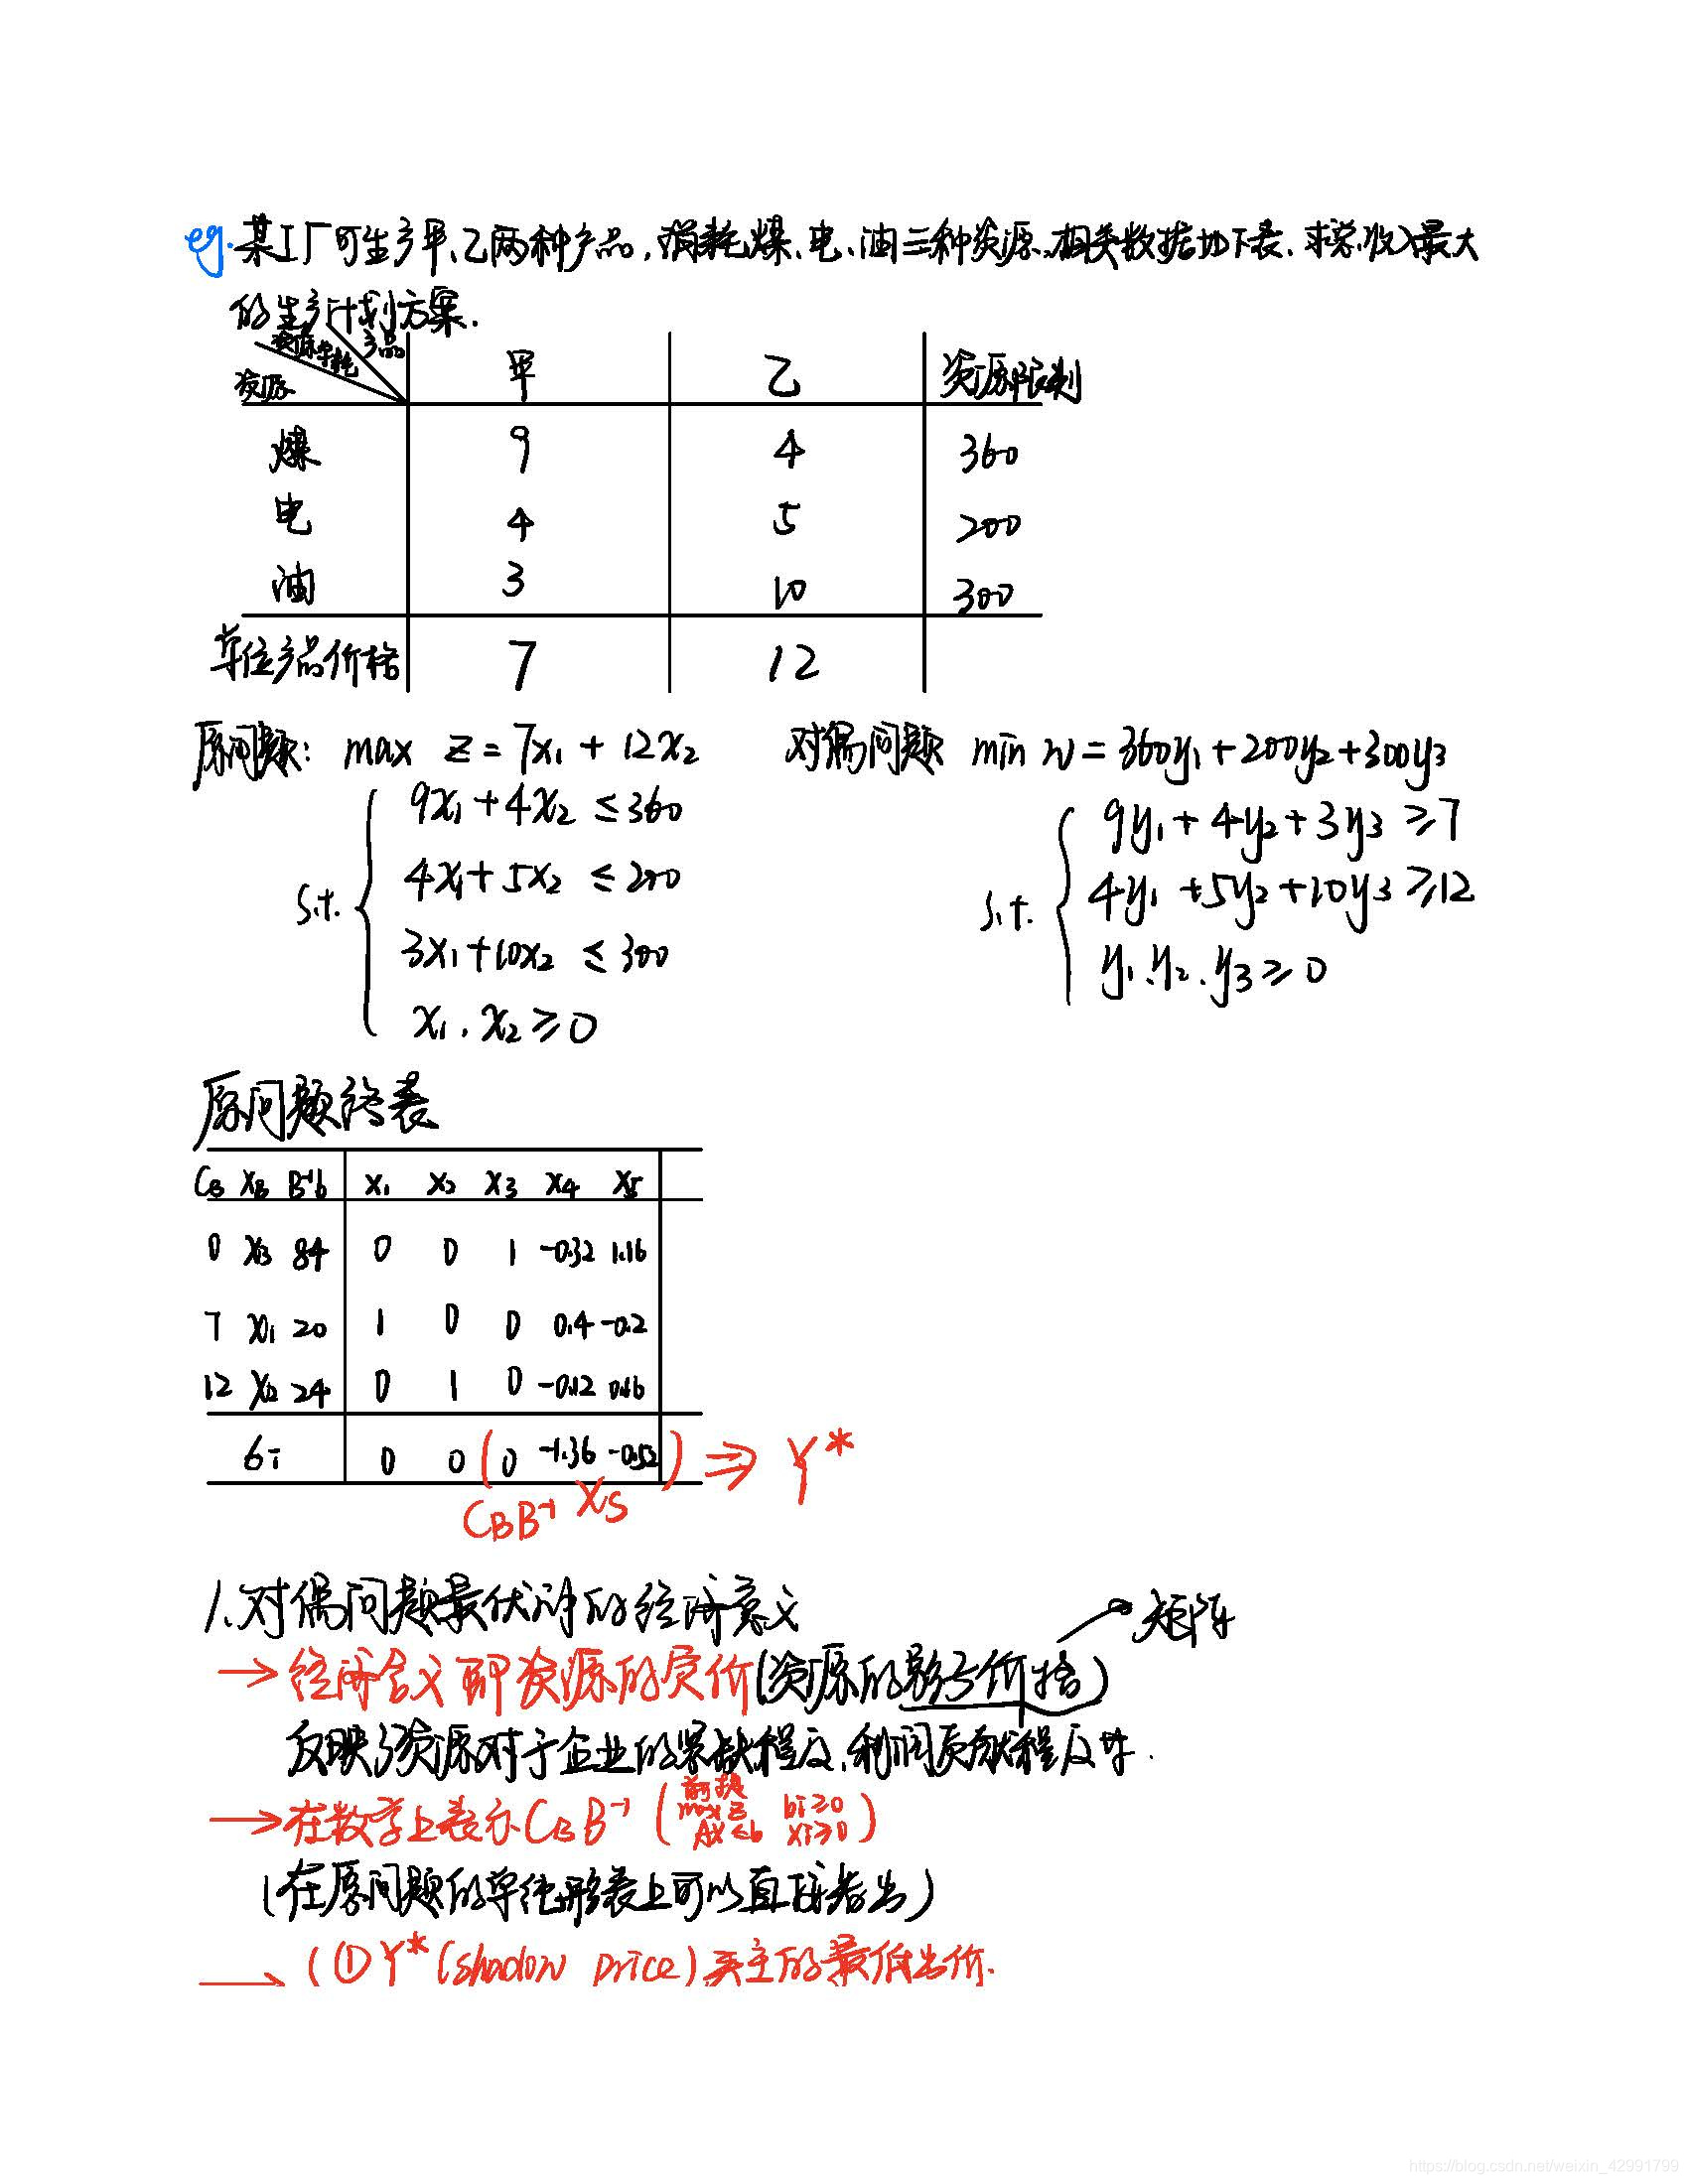 eg. 某工厂可生产甲、乙两种产品，消耗煤、电、油三种资源，相关数据如下表，求总收入最大
的生产计划方案.
资源 资源单耗 产品 甲 乙 资源限制
煤 9 4 360
电 4 5 200
油 3 10 300
单位产品价格 7 12
原问题: max z = 7x₁ + 12x₂
s.t.
9x₁ + 4x₂ ≤ 360
4x₁ + 5x₂ ≤ 200
3x₁ + 10x₂ ≤ 300
x₁, x₂ ≥ 0
对偶问题 min w = 360y₁ + 200y₂ + 300y₃
s.t.
9y₁ + 4y₂ + 3y₃ ≥ 7
4y₁ + 5y₂ + 10y₃ ≥ 12
y₁.y₂.y₃ ≥ 0
原问题终表
C_B X_B B⁻¹b x₁ x₂ x₃ x₄ x₅
0 x₃ 84 0 0 1 -0.32 1.16
7 x₁ 20 1 0 0 0.4 -0.2
12 x₂ 24 0 1 0 -0.12 0.16
σi 0 0 (0 -1.36 -0.52) ⇒ Y*
C_B B⁻¹ X_S
1. 对偶问题最优解的经济意义
→ 经济含义即资源的定价(资源的影子价格) 矩阵
反映了资源对于企业的紧缺程度,利润贡献程度等.
→ 在数学上表示C_B B⁻¹ (前提 max z bi≥0 AX≤b xi≥0)
(在原问题的单纯形表上可以直接看出)
→ (① Y* (shadow price) 买主的最低出价.
https://blog.csdn.net/weixin_42991799